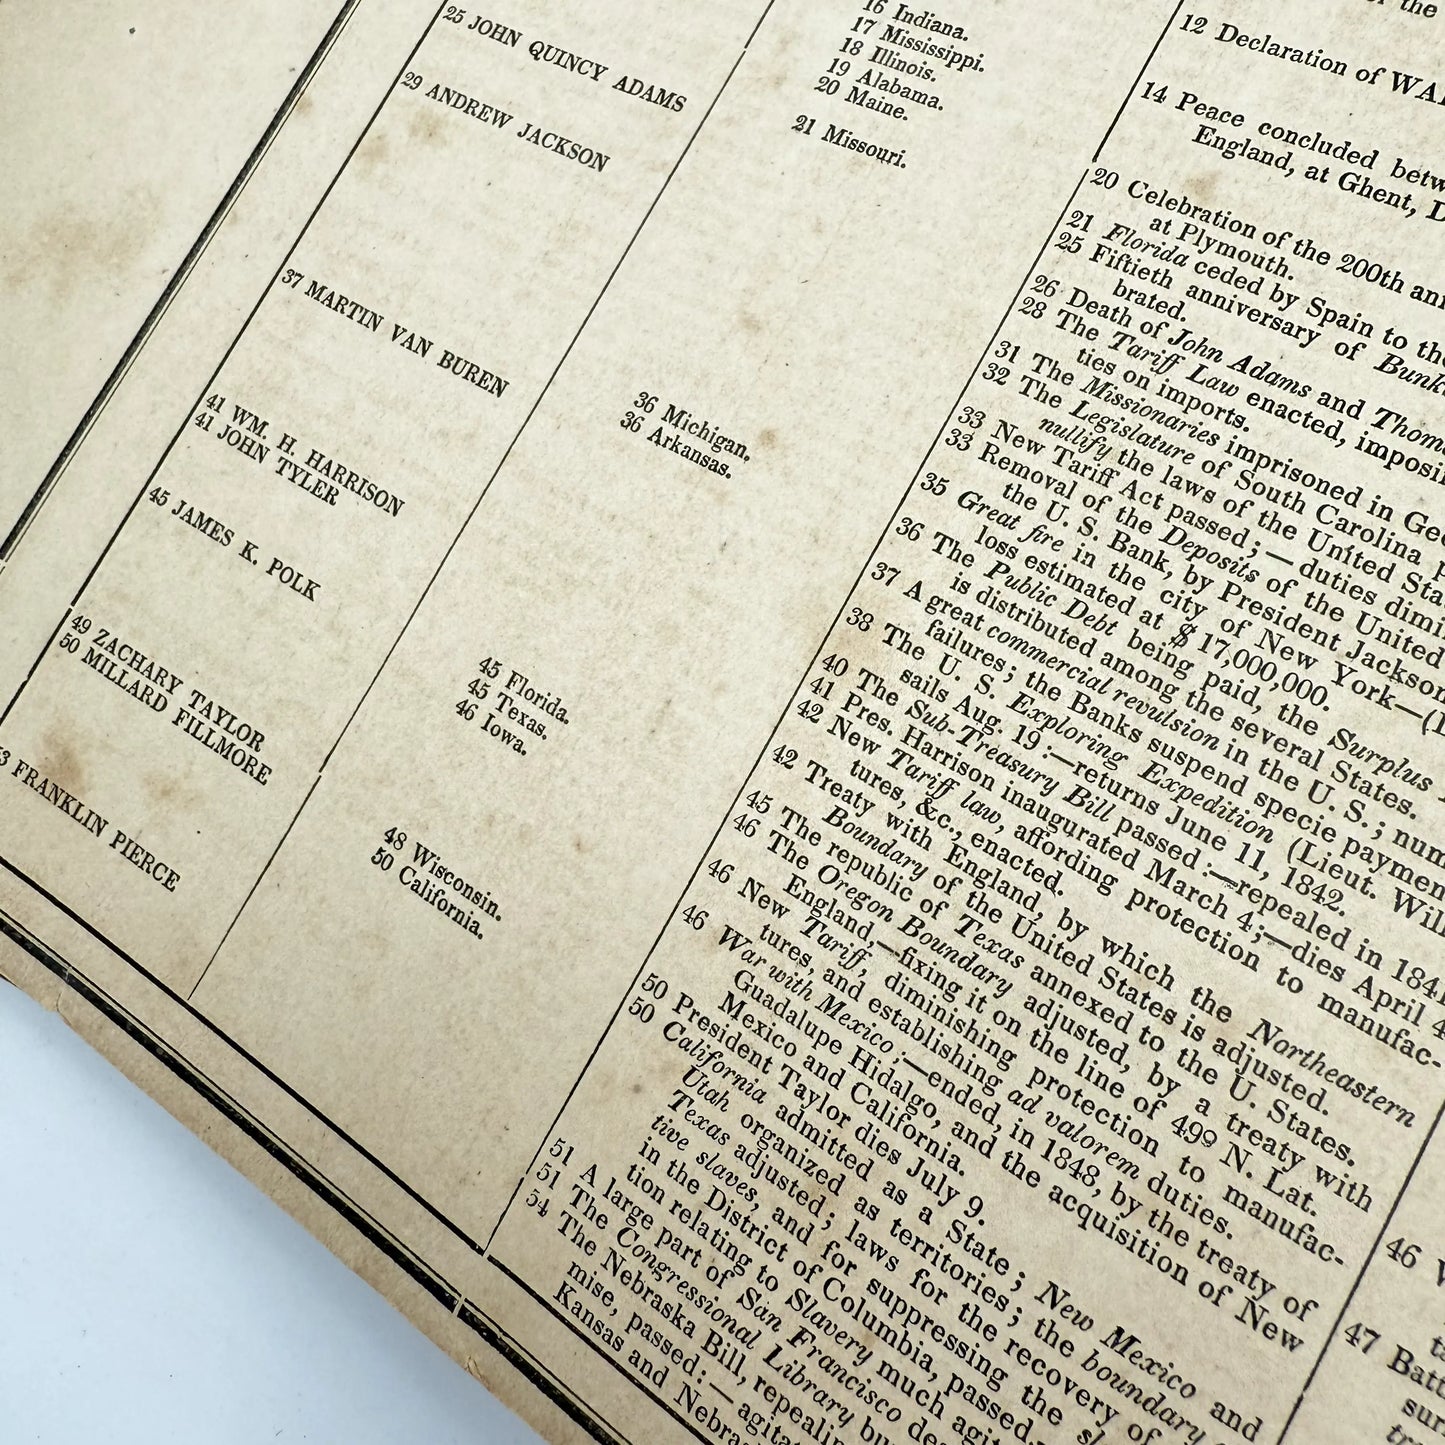 25 JOHN QUINCY ADAMS
29 ANDREW JACKSON
37 MARTIN VAN BUREN
41 WM. H. HARRISON
41 JOHN TYLER
45 JAMES K. POLK
49 ZACHARY TAYLOR
50 MILLARD FILLMORE
53 FRANKLIN PIERCE
16 Indiana.
17 Mississippi.
18 Illinois.
19 Alabama.
20 Maine.
21 Missouri.
36 Michigan,
36 Arkansas.
45 Florida.
45 Texas.
46 Iowa.
48 Wisconsin.
50 California.
the
12 Declaration of
14 Peace concluded
England, at Ghent,
20 Celebration of the 200th
at Plymouth.
21 Florida ceded by Spain to
25 Fiftieth anniversary of
brated.
26 Death of John Adams and
28 The Tariff Law enacted,
ties on imports.
31 The Missionaries imprisoned in
32 The Legislature of South Carolina
nullify the laws of the United
33 New Tariff Act passed;—duties
33 Removal of the Deposits of the United
the U. S. Bank, by President Jackson
35 Great fire in the city of New York—
loss estimated at $17,000,000.
36 The Public Debt being paid, the Surplus
is distributed among the several States.
37 A great commercial revulsion in the U. S.;
failures; the Banks suspend specie
38 The U. S. Exploring Expedition (Lieut.
sails Aug. 19:—returns June 11, 1842.
40 The Sub-Treasury Bill passed:—repealed in 1841
41 Pres. Harrison inaugurated March 4;—dies April
42 New Tariff law, affording protection to manufac-
tures, &c., enacted.
42 Treaty with England, by which the Northeastern
Boundary of the United States is adjusted.
45 The republic of Texas annexed to the U. States.
46 The Oregon Boundary adjusted, by a treaty with
England,—fixing it on the line of 49° N. Lat.
46 New Tariff, diminishing protection to manufac-
tures, and establishing ad valorem duties.
46 War with Mexico;—ended, in 1848, by the treaty of
Guadalupe Hidalgo, and the acquisition of New
Mexico and California.
50 President Taylor dies July 9.
50 California admitted as a State; New Mexico and
Utah organized as territories; the boundary
Texas adjusted; laws for the recovery of
tive slaves, and for suppressing the
in the District of Columbia, passed.
tion relating to Slavery much
51 A large part of San Francisco
51 The Congressional Library
54 The Nebraska Bill,
mise, passed:—
Kansas and
46
47